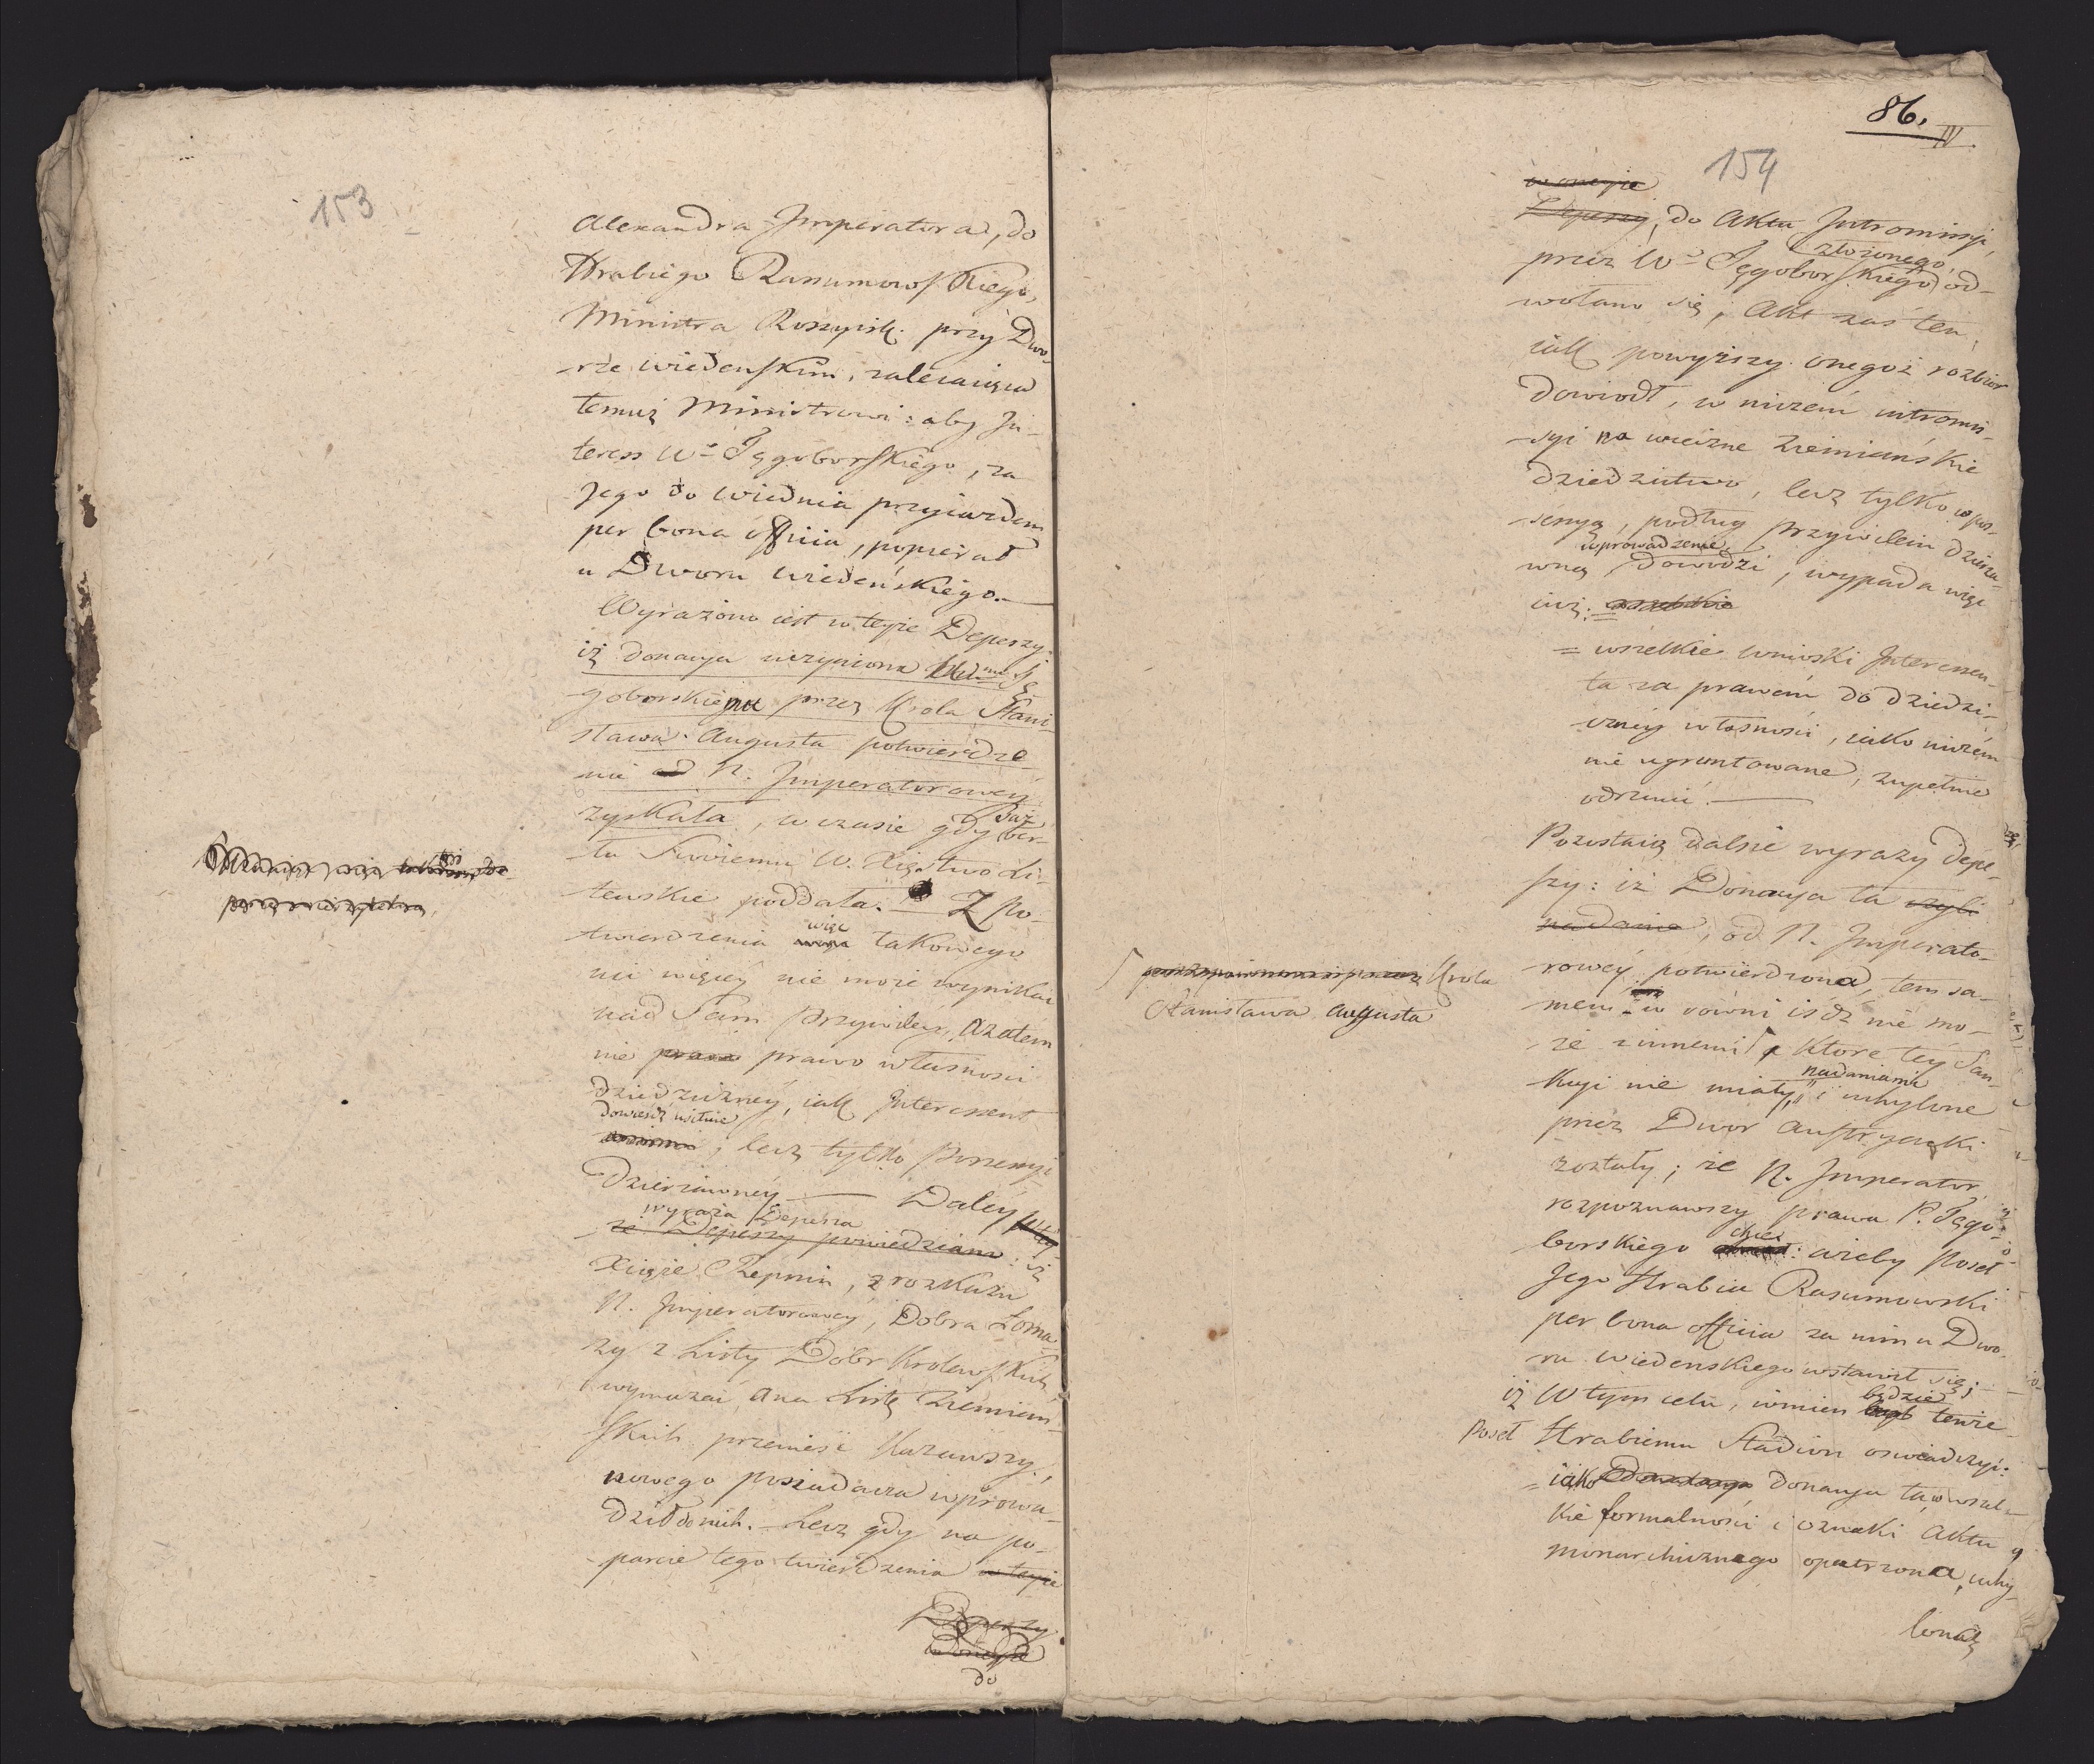 153
Alexandra Imperatora, do
Hrabiego Rassumowskiego,
Ministra Rossyisk. przy Dwo-
rże wiedenskim, zalecaiąca
temuż Ministrowi: aby In-
teress Wo Tęgoborskiego, za
Jego do Wiednia przyiazdem
per bona officia, popierał
u Dworu wiedeńskiego.—
Wyrażono iest w teyże Depeszy:
iż donacya uczyniona Tę-
goborskiemu przez Krola Stani-
sława Augusta potwierdze
nie od N. Imperatorowey
zyskała, w czasie gdy Ber-
łu Swoiemu W. Xięstwo Li-
tewskie poddała. — Z po-
więc
twierdzenia takowego
nic więcéy nie może wynikać
nad Sam Przywiley, a zatem
nie prawo prawo własnosci
dziedziczney, iak Interessent
dowieść usiłuie
, lecz tylko Possessyi
Dzierżawnéy. — Daléy
wyraża Depesza
że Depeszy powiedziano: iż
Xiąże Repnin, z rozkazu
N. Imperatorowey, Dobra Łoma
zy z Listy Dobr Krolewskich
wymazać, a na Listę Ziemiań-
skich przenieść kazawszy,
nowego posiadacza wprowa-
dził do nich. — Lecz gdy na po-
parcie tego twierdzenia w teyże
Depeszy
w oneyże
do
86.
IV.
154
w oneyże
Depeszy, do Aktu Intromissyi,
złożonego,
przez Wo Tęgoborskiego od-
wołano się, Akt zaś ten,
iak powyższy onegoż rozbior
dowiodł, w niczem intromis-
syi na wieczne Ziemiańskie
dziedzictwo, lecz tylko w pos-
sessyą, podług Przywileiu dzierża-
wprowadzenie
wną dowodzi, wypada więc
iuż:
= wszelkie wnioski Interessen-
ta za prawem do dziedzi-
czney własnosci, iako niczém
nie ugruntowane, zupełnie
odrzucić. —
Pozostaią dalsze wyrazy depe-
szy: iż Donacya ta czyli
nadanie, od N. Imperato-
rowéy potwierdzona, tem sa-
mem w rowni iśdź nie mo-
że z innemi ktore téy San-
nadaniami
kcyi nie miały, i uchylone
przez Dwor Austryacki
zostały; że N. Imperator
rozpoznawszy prawa P. Tęgo-
chce
borskiego : ażeby Poseł
Jego Hrabia Rasumowski
per bona officia za nim u Dwo-
ru wiedenskiego wstawił się; —
będzie
iż W tym celu, winien tenże
Poseł Hrabiemu Stadion oswiadczyć:
= iako donacya ta, w wszel-
kie formalności i oznaki Aktu
monarchicznego opatrzona, uchy-
loną
Krola
Stanisława Augusta